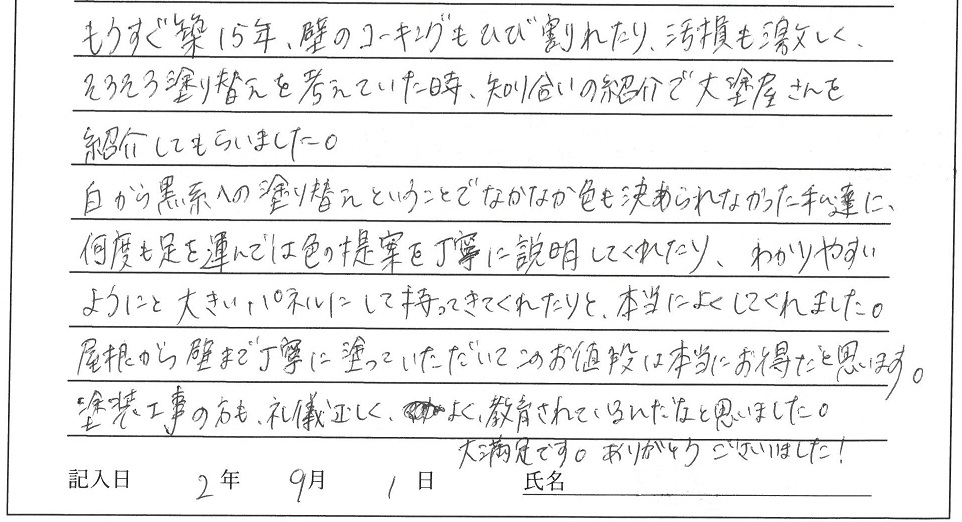 もうすぐ築15年、壁のコーキングもひび割れたり、汚損も激しく、
そろそろ塗り替えを考えていた時、知り合いの紹介で大塗屋さんを
紹介してもらいました。
白から黒系への塗り替えということでなかなか色も決められなかった私達に、
何度も足を運んでは色の提案を丁寧に説明してくれたり、わかりやすい
ようにと大きいパネルにして持ってきてくれたりと、本当によくしてくれました。
屋根から壁まで丁寧に塗っていただいてこのお値段は本当にお得だと思います。
塗装工事の方も、礼儀正しく、よく、教育されているんだなと思いました。
大満足です。ありがとうございました!
記入日 2年 9月 1日 氏名